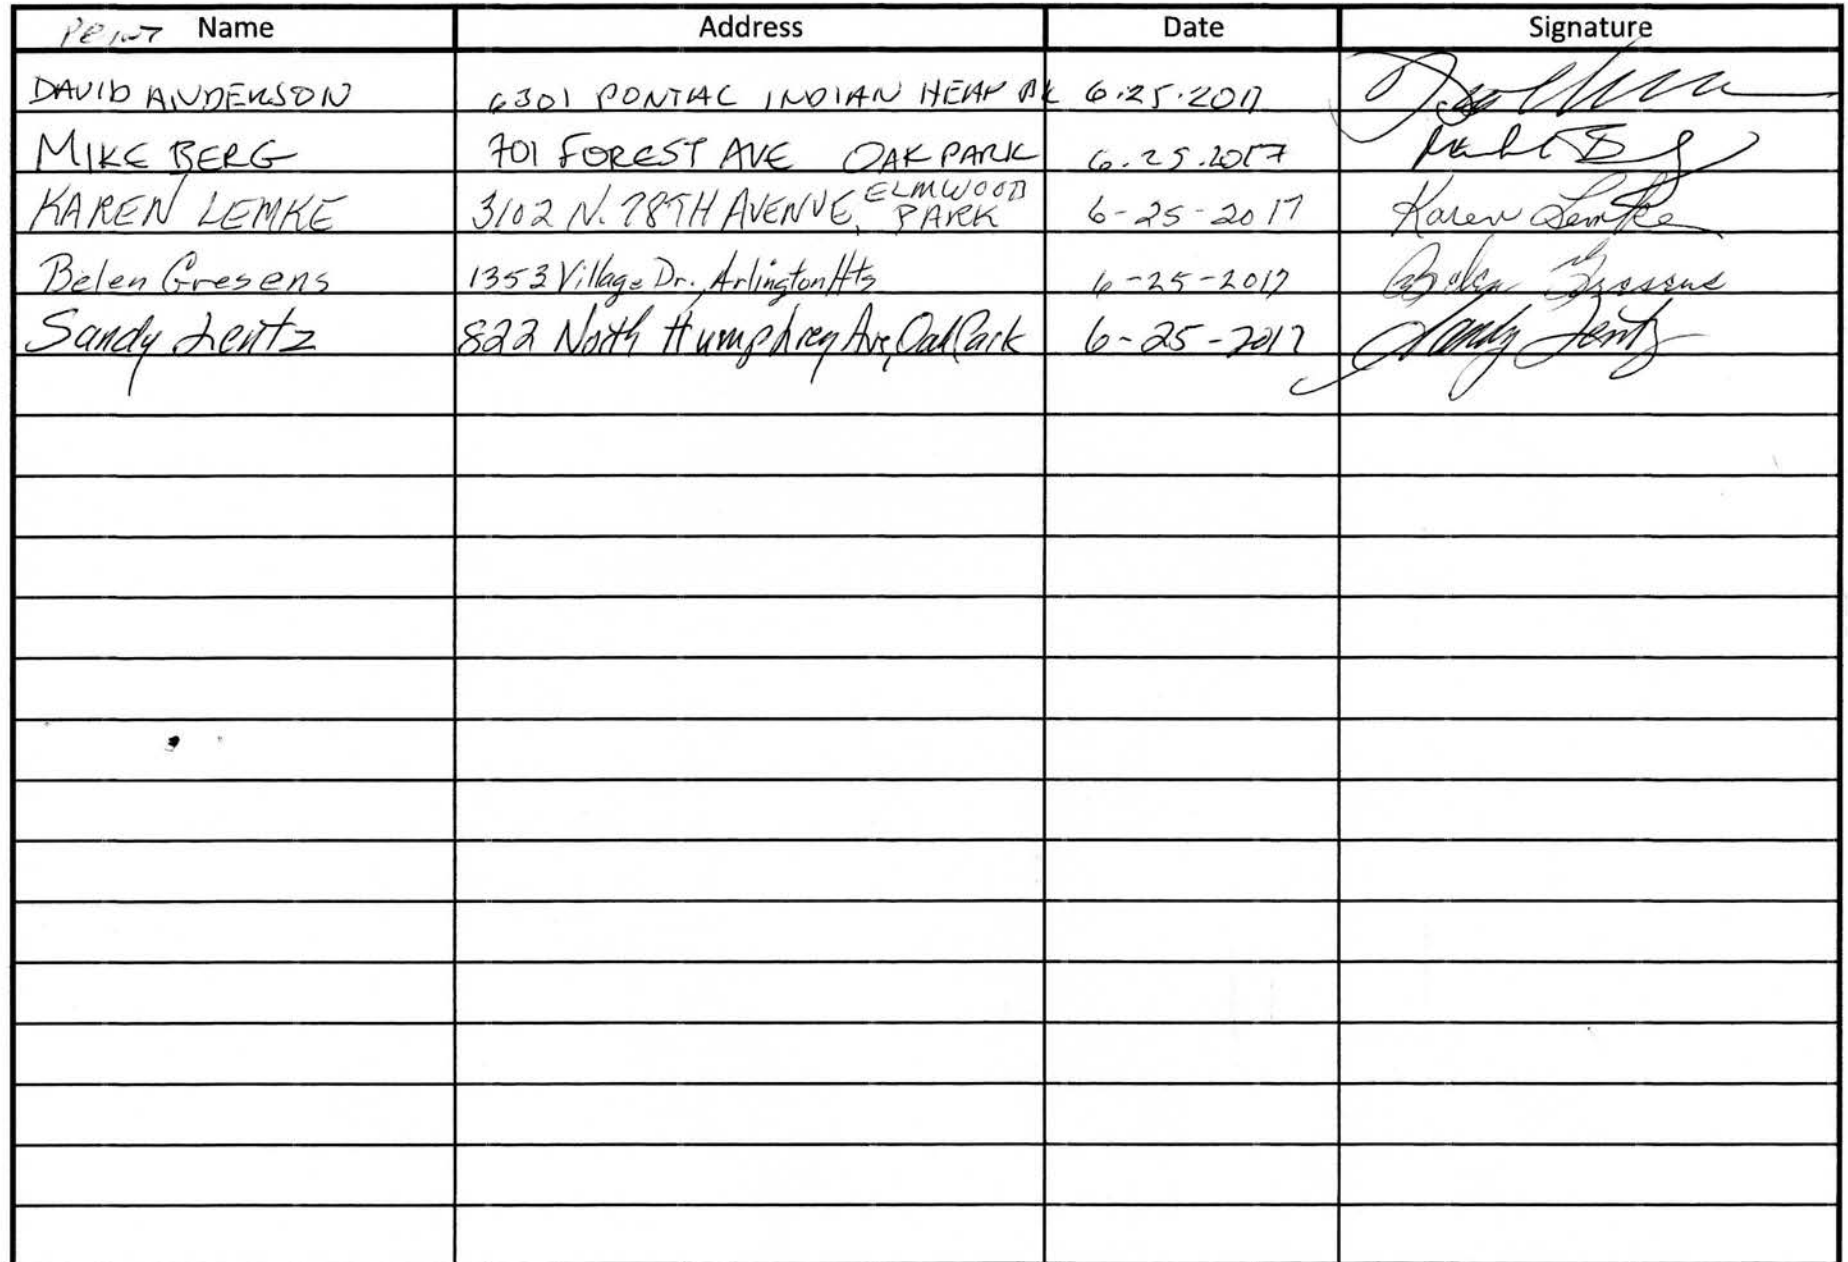 PRINT Name Address Date Signature
DAVID ANDERSON 6301 PONTIAC INDIAN HEAD PK 6.25.2017
MIKE BERG 701 FOREST AVE OAK PARK 6.25.2017
KAREN LEMKE 3102 N. 78TH AVENUE, ELMWOOD PARK 6-25-2017 Karen Lemke
Belen Gresens 1353 Village Dr., Arlington Hts 6-25-2017 Belen Gresens
Sandy Lentz 822 North Humphrey Ave, Oak Park 6-25-2017 Sandy Lentz